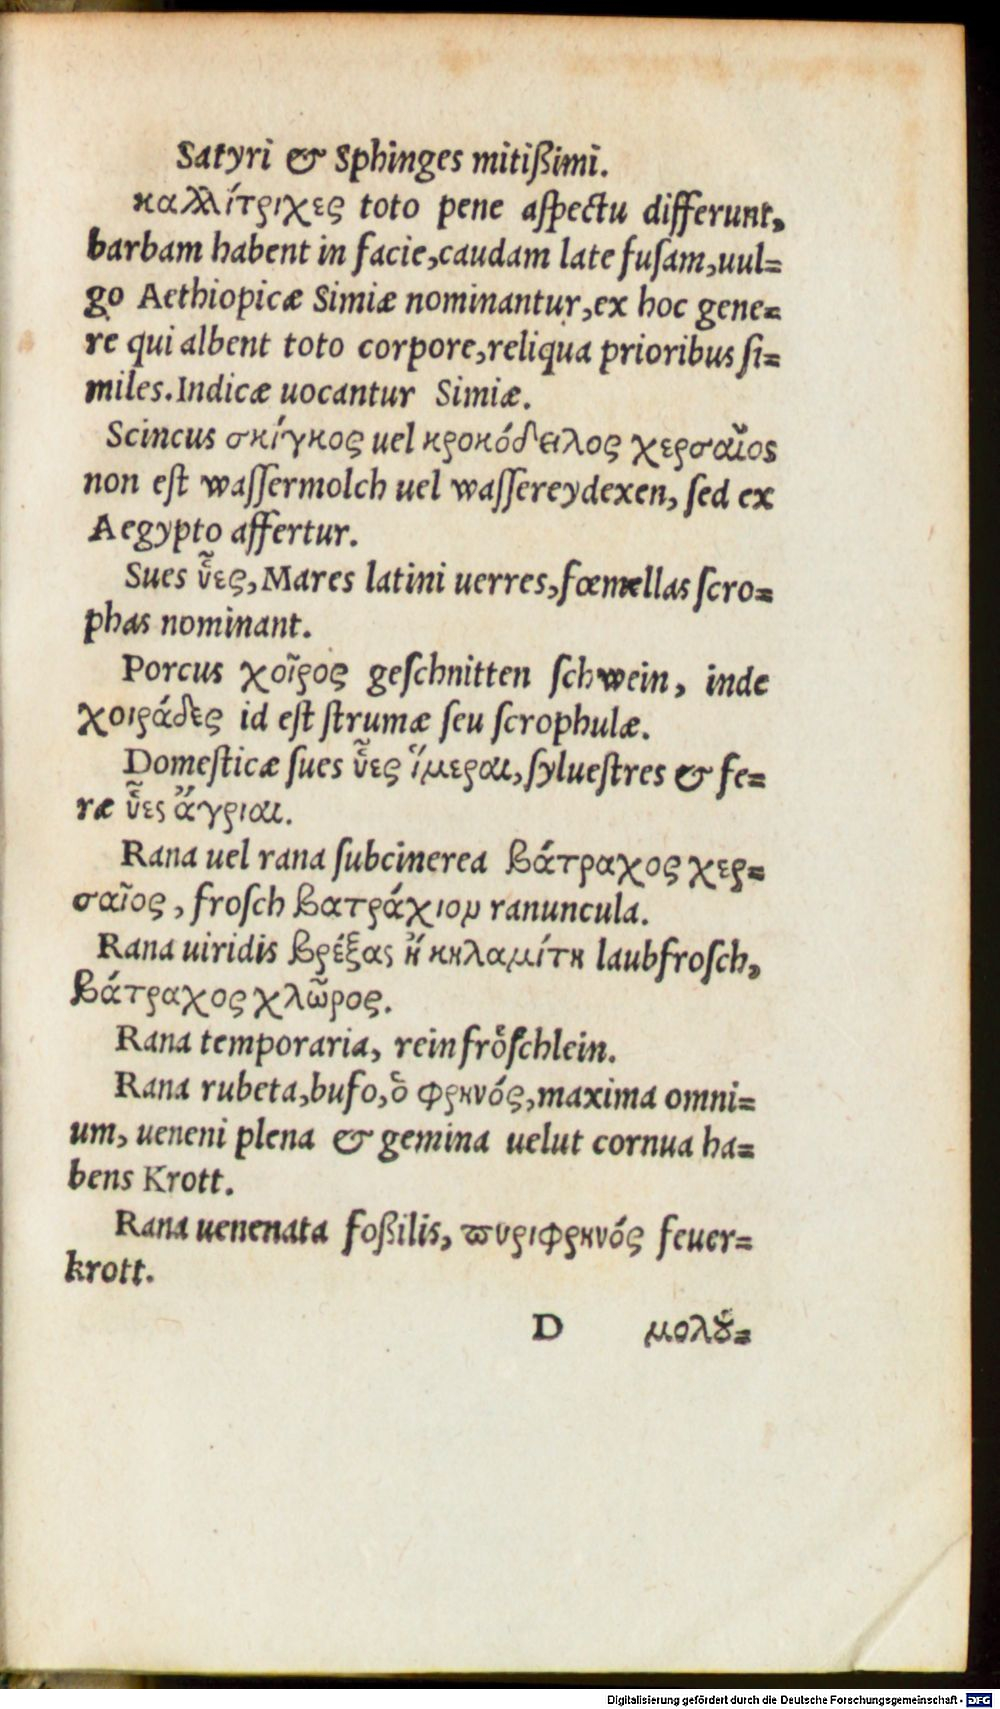 Satyri & Sphinges mitißimi.
καλλίτριχες toto pene aſpectu differunt,
barbam habent in facie, caudam late fuſam, uul=
go Aethiopicæ Simiæ nominantur, ex hoc gene=
re qui albent toto corpore, reliqua prioribus ſi=
miles. Indicæ uocantur Simiæ.
Scincus σκίγκος uel κροκόδειλος χερσαῖος
non eſt waſſermolch uel waſſereydexen, ſed ex
Aegypto affertur.
Sues ὗες, Mares latini uerres, fœmellas ſcro=
phas nominant.
Porcus χοῖρος geſchnitten ſchwein, inde
χοιράδες id eſt ſtrumæ ſeu ſcrophulæ.
Domeſticæ ſues ὗες ἵμεραι, ſylueſtres & fe=
ræ ὗες ἄγριαι.
Rana uel rana ſubcinerea βάτραχος χερ=
σαῖος, froſch βατράχιον ranuncula.
Rana uiridis βρέξας ἢ κηλαμίτη laubfroſch,
βάτραχος χλῶρος.
Rana temporaria, reinfroͤſchlein.
Rana rubeta, bufo, ὁ φρηνός, maxima omni=
um, ueneni plena & gemina uelut cornua ha=
bens Krott.
Rana uenenata foßilis, πυριφρηνός feuer=
krott.
D μολού=
Digitalisierung gefördert durch die Deutsche Forschungsgemeinschaft - DFG